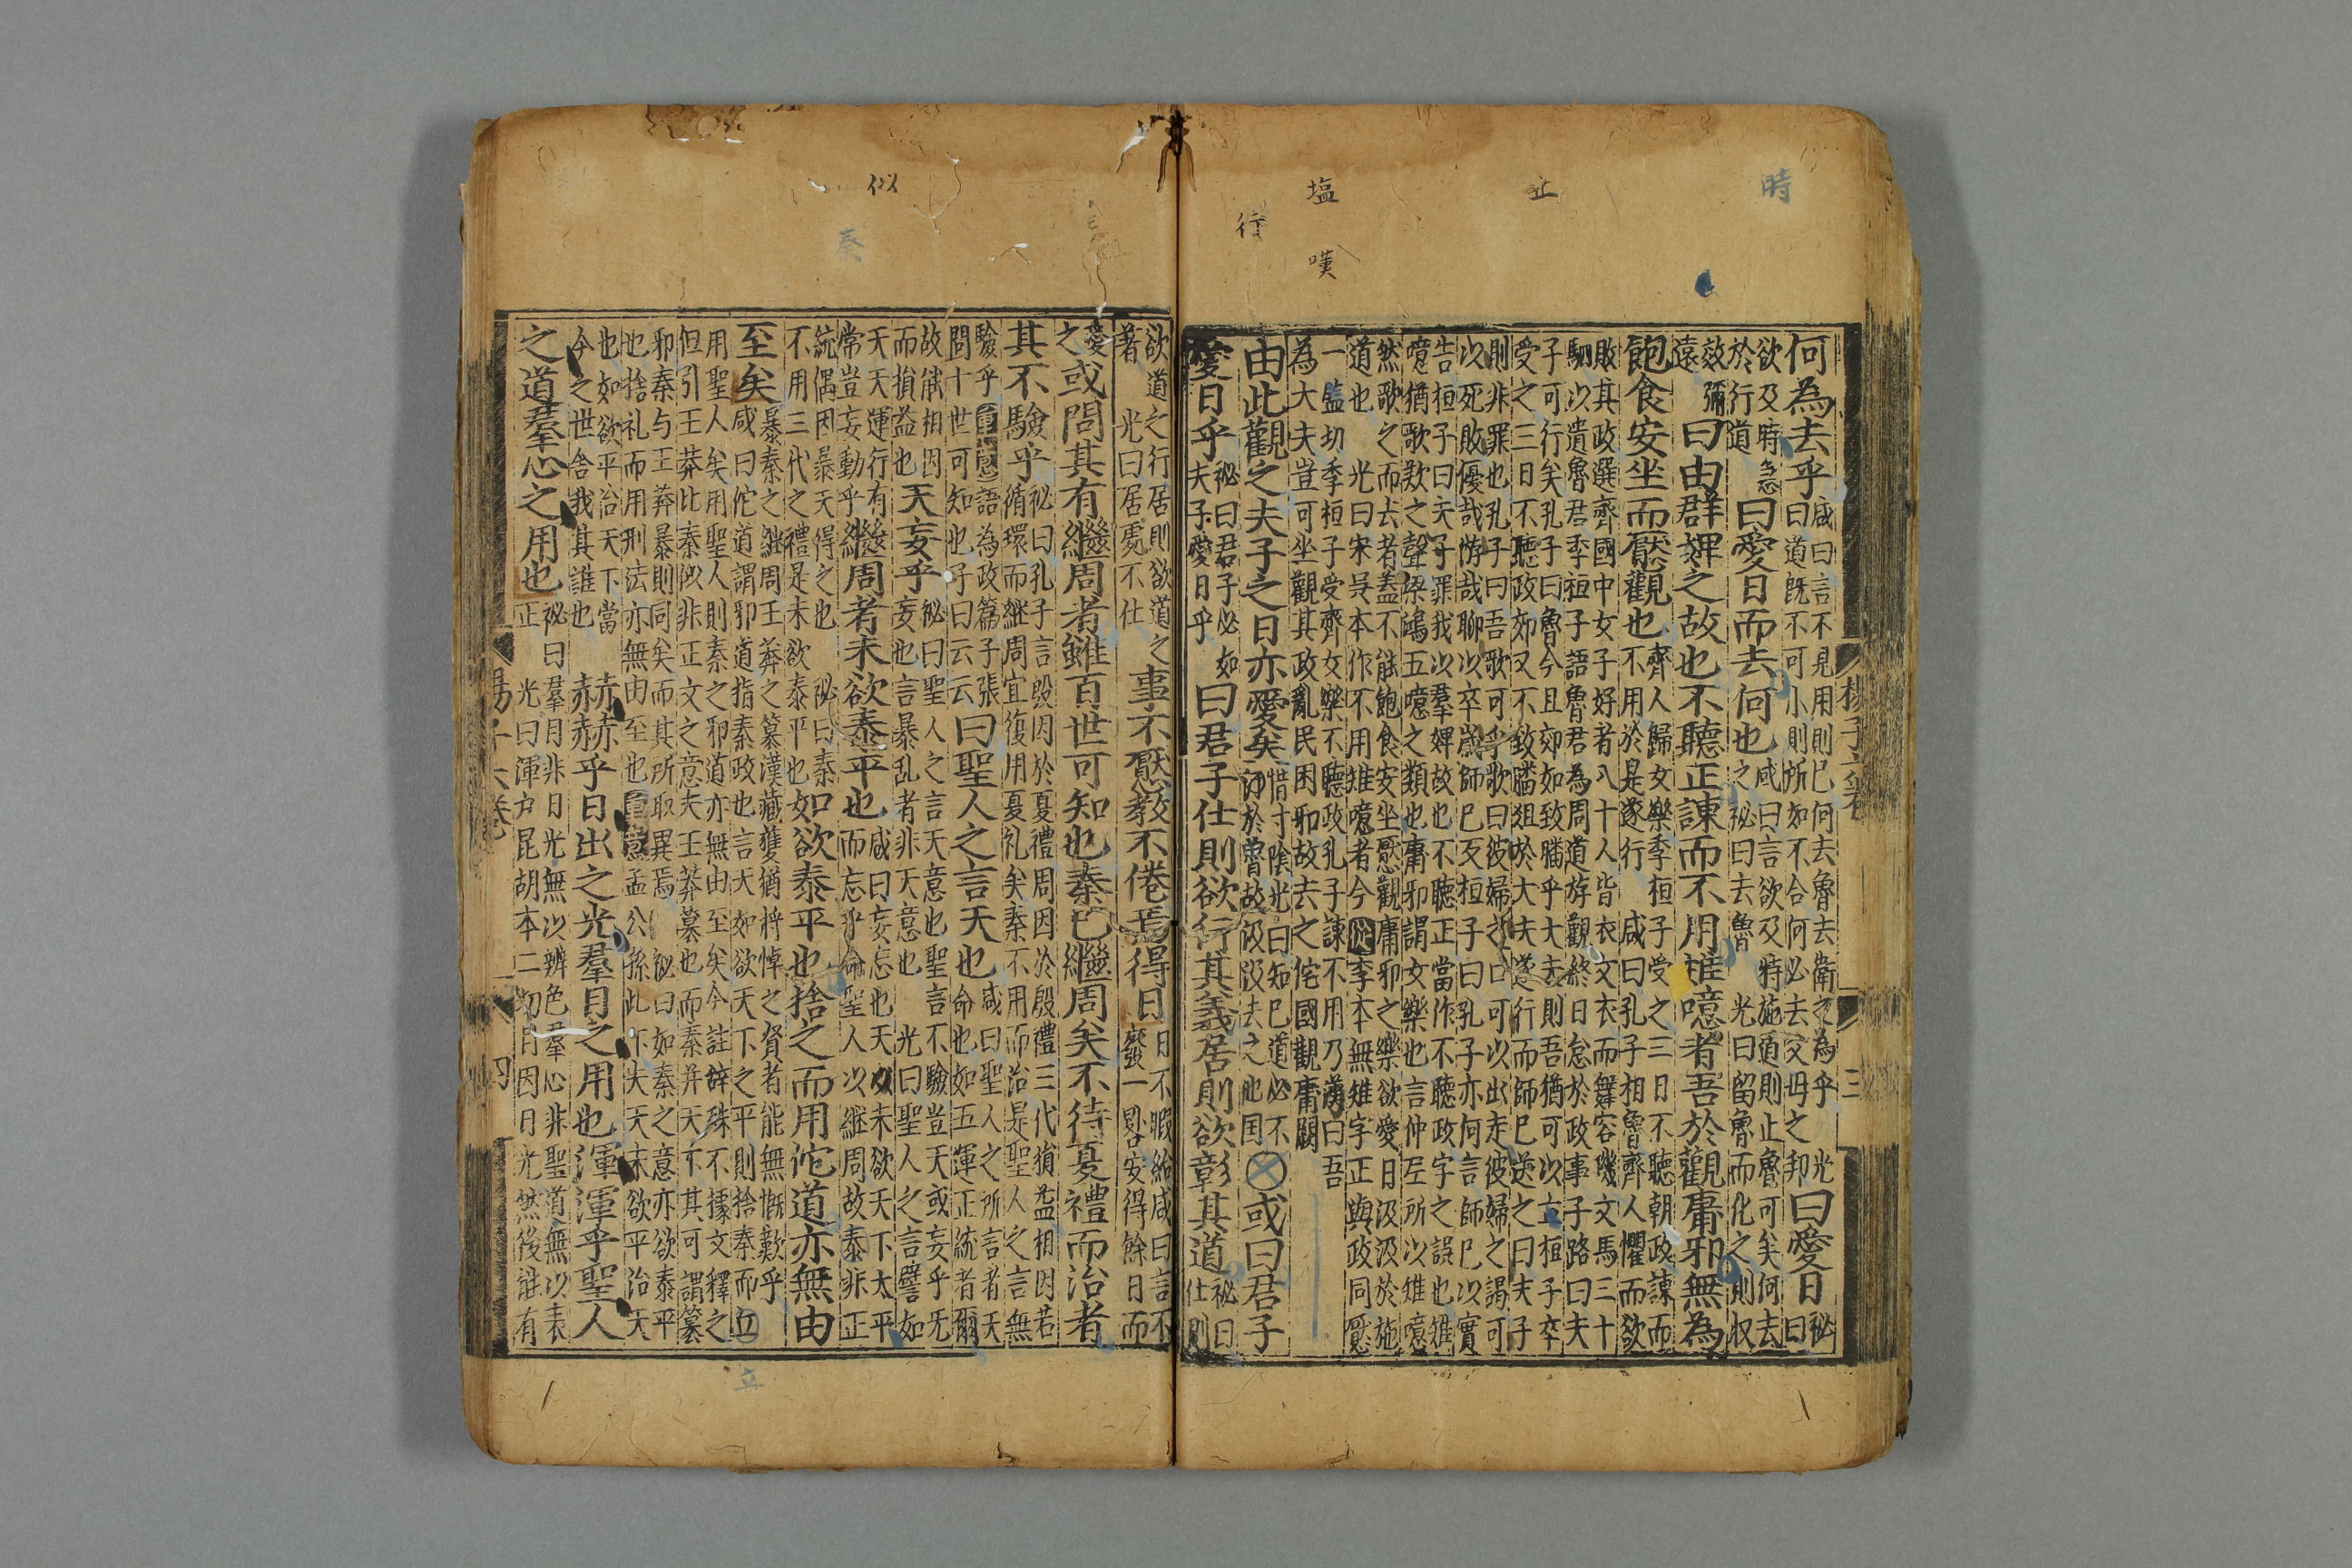 時
止
塩
嘆
行
何為去乎
咸曰言不見用則已何去魯去衛之為乎
曰道既不可小則所如不合何必去父母之邦
光
曰愛日
秘曰
欲及時
於行道
急
曰愛日而去何也
咸曰言欲及時施道則止魯可矣何去
之秘曰去魯
光曰留魯而化之則収
效彌
遠
曰由群婢之故也不聽正諫而不用雉噫者吾於觀庸邪無為
飽食安坐而厭觀也
齊人歸女樂季桓子受之三日不聽朝政諫而
不用於是遂行
咸曰孔子相魯齊人懼而欲
敗其政選齊國中女子好者八十人皆衣文衣而舞容璣文馬三十
駟以遺魯君季桓子語魯君為周道游觀終日怠於政事子路曰夫
子可行矣孔子曰魯今且郊如致膰乎大夫則吾猶可以立桓子卒
受之三日不聽政郊又不致膰俎於大夫遂行而師已送之曰夫子
則非罪也孔子曰吾歌可乎歌曰彼婦之口可以出走彼婦之謁可
以死敗優哉游哉聊以卒歲師已反桓子曰孔子亦何言師已以實
告桓子曰夫子罪我以羣婢故也不聽正當作不聽政字之誤也雉
噫猶歌歎之聲梁鴻五噫之類也庸邪謂女樂也言仲尼所以雉噫
然歌之而去者蓋不能飽食安坐厭觀庸邪之樂欲愛日汲汲於施
道也
光曰宋吳本作不用雉噫者今從李本無雉字正與政同厭
一塩切季桓子受齊女樂不聽政孔子諫不用乃嘆曰吾
為大夫豈可坐觀其政亂民困邪故去之佗國觀庸闕
由此觀之夫子之日亦愛矣
惜寸陰光曰知已道必不
行於魯故汲汲去之他国
或曰君子
愛日乎
秘曰君子必如
夫子愛日乎
曰君子仕則欲行其義居則欲彰其道
秘曰
仕則
揚子六卷
三
似
秦
欲道之行居則欲道之
著
光曰居處不仕
事不厭教不倦焉得日
日不暇給咸曰言不
廢一晷安得餘日而
愛
之
或問其有繼周者雖百世可知也秦已繼周矣不待夏禮而治者
其不驗乎
秘曰孔子言殷因於夏禮周因於殷禮三代損益相因若
循環而継周宜復用夏礼矣秦不用而治是聖人之言無
驗乎重意語為政篇子張
問十世可知也子曰云云
曰聖人之言天也
咸曰聖人之所言者天
命也如五運正統者爾
故能相因
而損益也
天妄乎
秘曰聖人之言天意也聖言不驗豈天或妄乎旡
妄也言暴乱者非天意也
光曰聖人之言譬如
天天運行有
常豈妄動乎
繼周者未欲泰平也
咸曰妄忘也天以未欲天下太平
而忘乎命聖人以継周故泰非正
統偶因暴天得之也
不用三代之禮是未欲泰平也
秘曰秦
如欲泰平也捨之而用佗道亦無由
至矣
暴秦之継周王莽之簒漢藏獲猶將悼之賢者能無慨歎乎
咸曰佗道謂邪道指秦政也言天如欲天下之平則捨秦而立
用聖人矣用聖人則秦之邪道亦無由至矣今註辞殊不據文釋之
但引王莽比秦似非正文之意夫王莽簒也而秦并天下其可謂簒
邪秦与王莽暴則同矣而其所取異焉
秘曰如秦之意亦欲泰平
也捨礼而用刑法亦無由至也重意孟公孫此下夫天未欲平治天
也如欲平治天下當
今之世舍我其誰也
赫赫乎日出之光羣目之用也渾渾乎聖人
之道羣心之用也
秘曰羣目非日光無以辨色羣心非聖道無以表
正
光曰渾戸昆胡本二切目因日光然後能有
揚子六卷
四
立